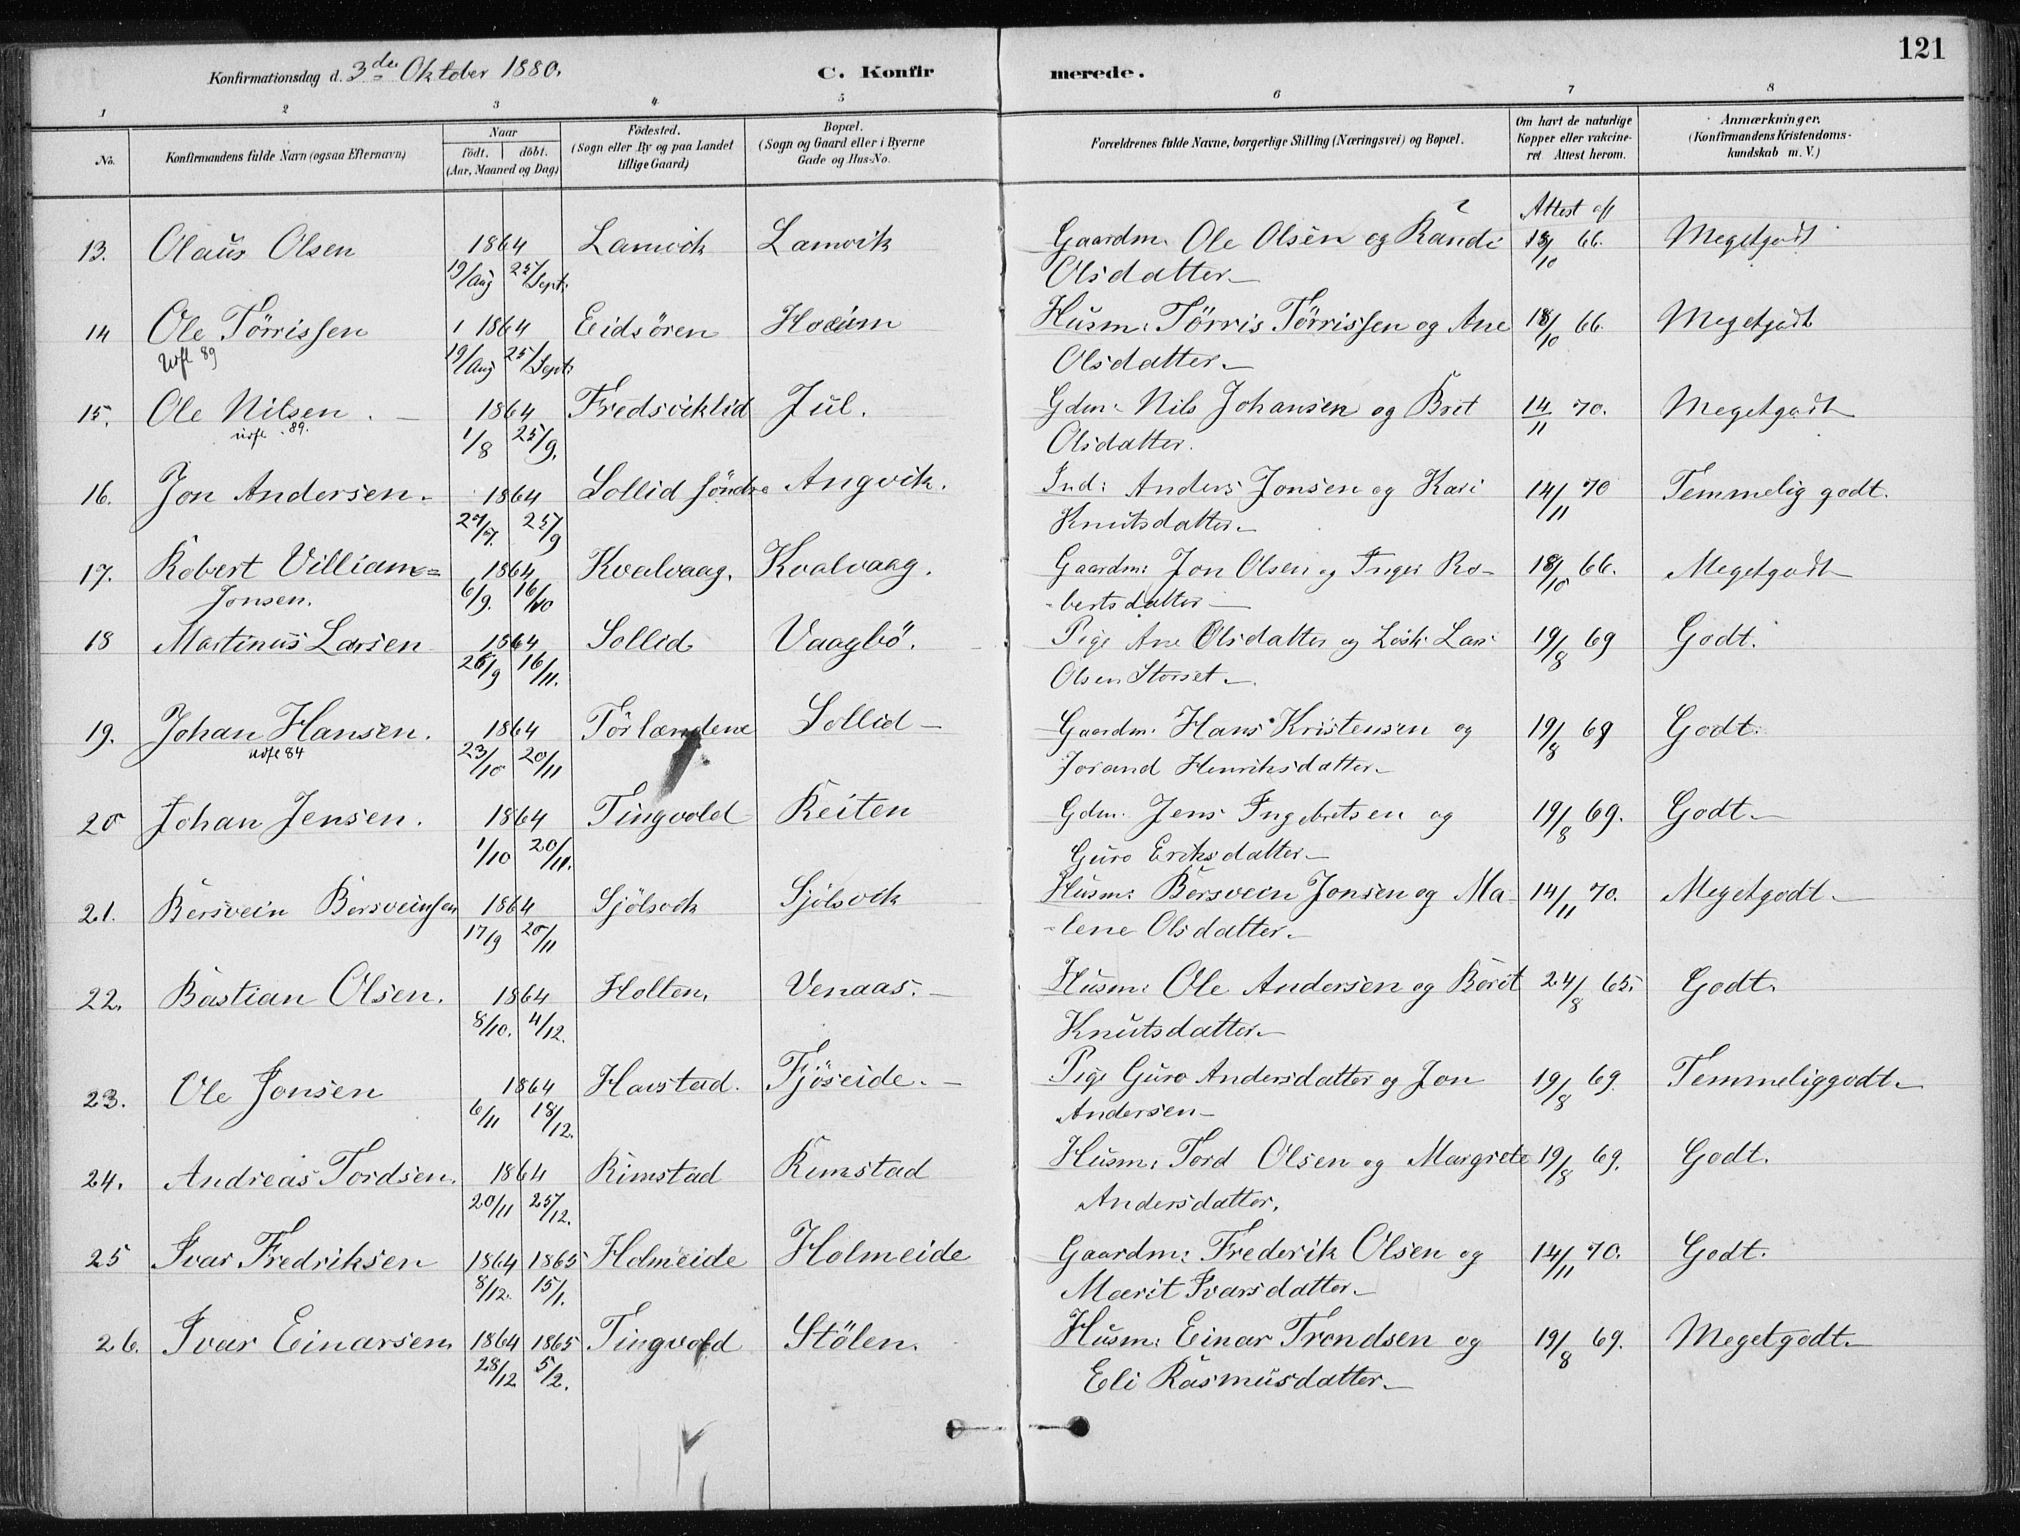 121
Konfirmationsdag d. 3de Oktober 1880. C. Konfirmerede.
1 2 3 4 5 6 7 8
No. Konfirmandens fulde Navn (ogsaa Efternavn) Naar födt. döbt. (Aar, Maaned og Dag) Födested. (Sogn eller By og paa Landet tillige Gaard) Bopæl. (Sogn og Gaard eller i Byerne Gade og Hus-No. Forældrenes fulde Navne, borgerlige Stilling (Næringsvei) og Bopæl. Om havt de naturlige Kopper eller vakcineret Attest herom. Anmærkninger. (Konfirmandens Kristendomskundskab m. V.)
Attest af
13. Olaus Olsen 1864 Lamvik Lamvik Gaardm. Ole Olsen og Randi 18/10 66. Megetgodt
19/Aug 25/Sept: Olsdatter
14 Ole Törrissen 1864 Eidsören Husm: Törris Törrissen og Ane 18/10 66. Megetgodt
89 19/Aug 25/Sept: Olsdatter
15. Ole Nilsen. 1864 Fredsviklid Jul. Gdm: Nils Johansen og Brit 14/11 70. Megetgodt
89. 1/8 25/9. Olsdatter.
16. Jon Andersen 1864 Sollid söndre Angvik. Ind: Anders Jonsen og Kari 14/11 70 Temmelig godt.
27/7. 25/9 Knutsdatter
17. Robert Villiam= 1864 Kvalvaag. Kvalvaag. Gaardm: Jon Olsen og Inger Ro- 18/10 66. Megetgodt
Jonsen. 6/9. 16/10 -bertsdatter
18 Martinus Larsen 1864 Sollid Vaagbö. Pige Ane Olsdatter og Lösk: Lars 19/8 69 Godt.
26/9 16/11. Olsen Storset
19. Johan Hansen. 1864 Törlændene Sollid Gaardm. Hans Kristensen og 19/8 69 Godt.
84 23/10 20/11 Jorand Henriksdatter
20 Johan Jensen. 1864 Tingvold Reiten Gdm. Jens Ingebretsen og 19/8 69. Godt
1/10 20/11. Guro Eriksdatter
21. Bersvein Bersveinsen 1864 Sjölsvik Sjölsvik Husm: Bersvein Jonsen og Ma- 14/11 70. Megetgodt
17/9 20/11 -lene Olsdatter
22. Bastian Olsen. 1864 Holten. Venaas. Husm: Ole Andersen og Börit 24/8 65. Godt.
8/10. 4/12. Knutsdatter
23. Ole Jonsen 1864 Havstad. Fjöseide. Pige Guro Andersdatter og Jon 19/8 69. Temmeliggodt
6/11 18/12. Andersen
24. Andreas Tordsen. 1864 Rimstad Rimstad Husm: Tord Olsen og Margrete 19/8 69. Godt.
20/11 25/12. Andersdatter.
25 Ivar Fredriksen 1864 1865 Holmeide Holmeide Gaardm: Frederik Olsen og 14/11 70. Godt.
8/12. 15/1. Marit Ivarsdatter
26. Ivar Einarsen 1864 1865 Tingvold Stölen. Husm: Einar Trondsen og 19/8 69. Megetgodt
28/12 5/2. Eli Rasmusdatter